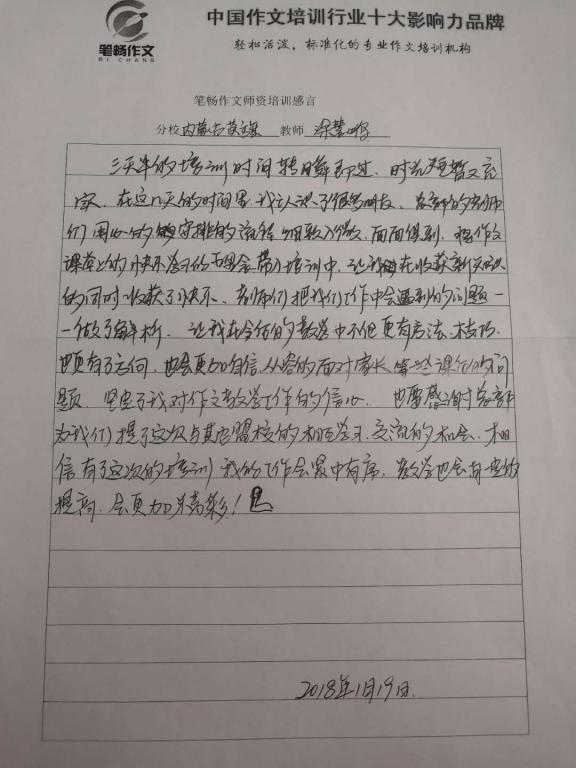 中国作文培训行业十大影响力品牌
轻松活泼，标准化的专业作文培训机构
笔畅作文
BI CHANG
笔畅作文师资培训感言
分校内蒙古 教师
三天半的培训时间转瞬即过，时光短暂又充
实，在这几天的时间里，我认识了很多朋友，总部的老师
们用心的安排的流程细致入微，面面俱到，将作文
课堂上的快乐学习的理念带入培训中，让我们在收获新知识
的同时收获了快乐，老师们把我们工作中会遇到的问题一
一做了解析，让我在今后的教学中不但更有方法、技巧，
也更有了方向，也会更加自信，从容的面对家长等一些课后的问
题，坚定了我对作文教学工作的信心，也要感谢总部
为我们提了这次与其它盟校的相互学习、交流的机会，相
信有了这次的培训，我的工作会紧中有序，教学也会有些的
提高，会更加精彩！
2018年1月19日